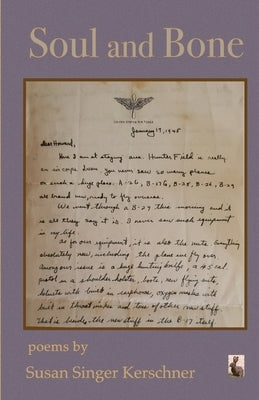 Soul and Bone
UNITED STATES AIR FORCE
January 19, 1945
Dear Howard,
Here I am at staging area. Hunter Field is really
an air corps town. You never saw so many planes
on such a huge place. A-26, B-17G, B-25, B-26, B-29
all brand new, ready to fly overseas.
We went through a B-29 this morning and it
is all they say it is. I never saw such equipment
in my life.
As for our equipment, it is also the nuts. Everything
absolutely new, including the plane we fly over.
Among our issue is a huge hunting knife, a 45 cal.
pistol in a shoulder holster, boots, new flying suits,
helmets with built in earphones, oxygen masks with
built in throat mikes and tons of other new stuff.
That is beside the new stuff in the B-17 itself.
poems by
Susan Singer Kerschner